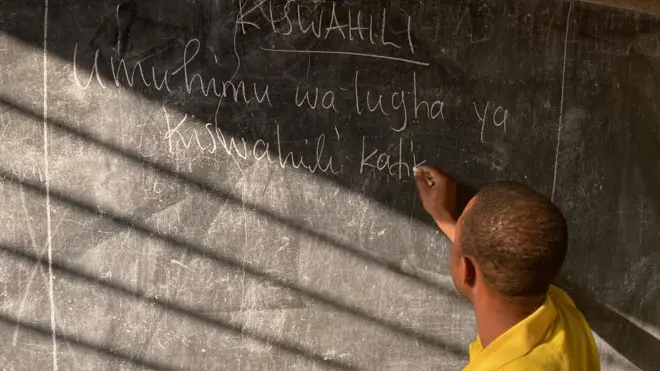 KISWAHILI
Umuhimu wa lugha ya
Kiswahili katik